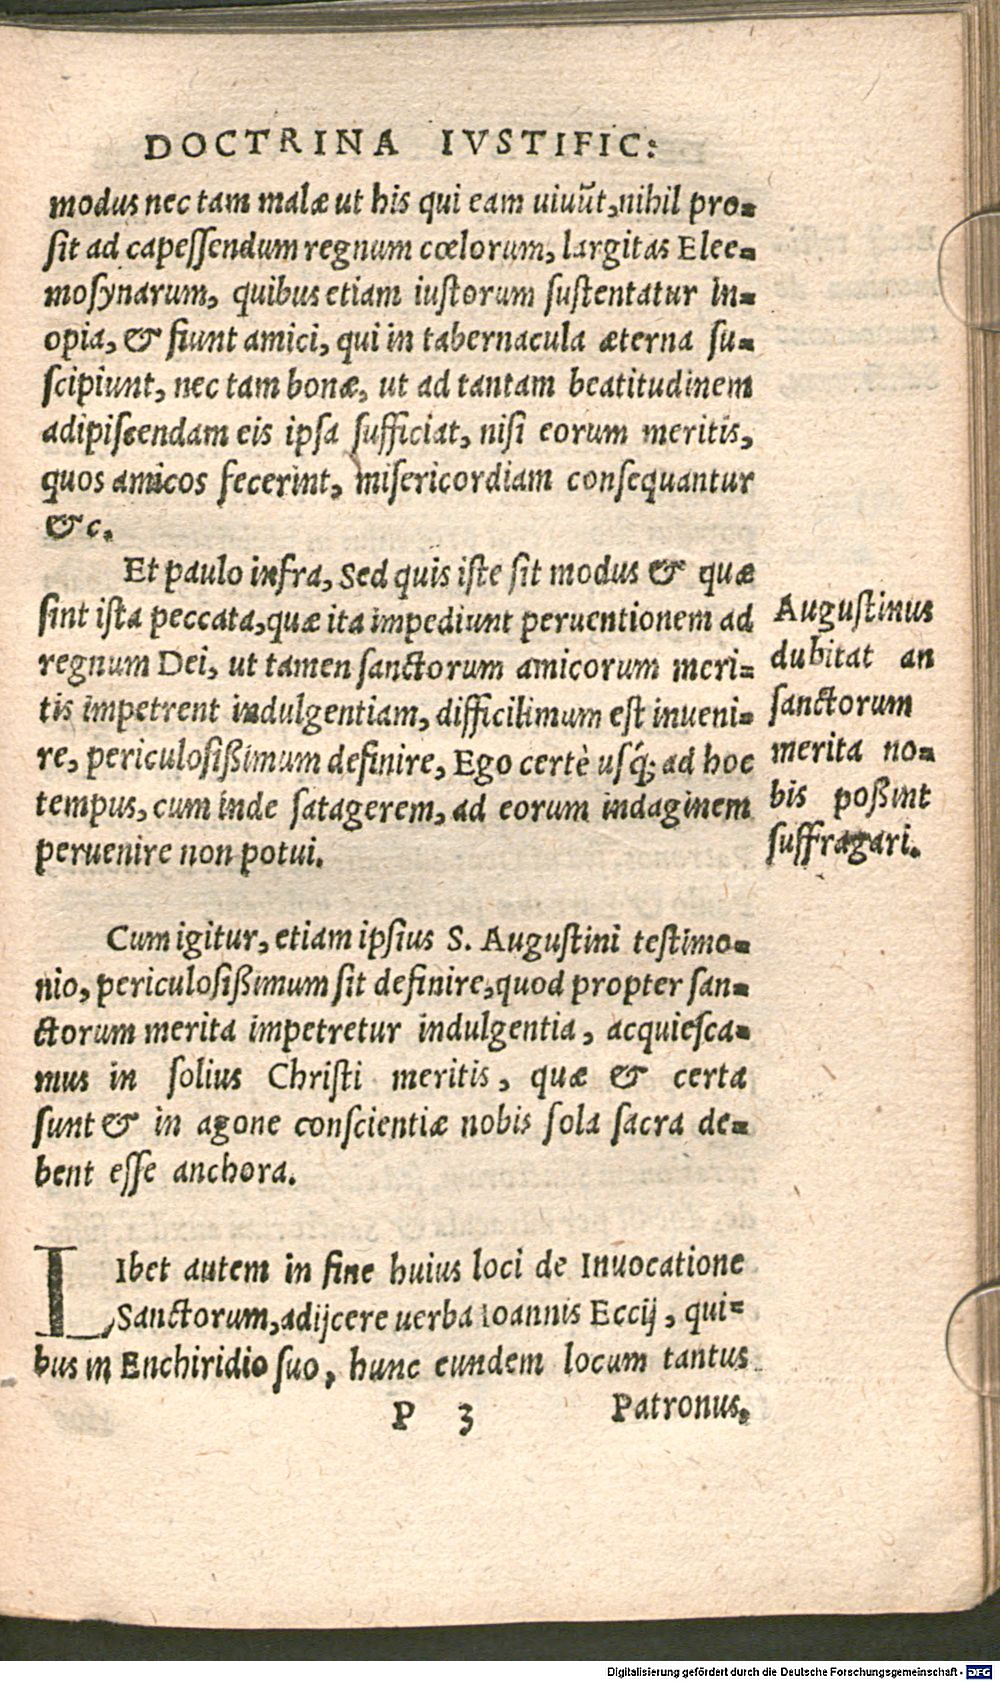 DOCTRINA IVSTIFIC:
modus nec tam malæ ut his qui eam uiuũt, nihil pro=
sit ad capeſſendum regnum cœlorum, largitas Elee=
moſynarum, quibus etiam iuſtorum ſuſtentatur in=
opia, & fiunt amici, qui in tabernacula æterna ſu=
ſcipiunt, nec tam bonæ, ut ad tantam beatitudinem
adipiſcendam eis ipſa ſufficiat, niſi eorum meritis,
quos amicos fecerint, miſericordiam conſequantur
&c.
Et paulo infra, Sed quis iſte ſit modus & quæ
ſint iſta peccata, quæ ita impediunt peruentionem ad
regnum Dei, ut tamen ſanctorum amicorum meri=
tis impetrent indulgentiam, difficilimum eſt inueni=
re, periculoſißimum definire, Ego certè uſq́; ad hoc
tempus, cum inde ſatagerem, ad eorum indaginem
peruenire non potui.
Auguſtinus
dubitat an
ſanctorum
merita no=
bis poßint
ſuffragari.
Cum igitur, etiam ipſius S. Auguſtini teſtimo=
nio, periculoſißimum ſit definire, quod propter ſan=
ctorum merita impetretur indulgentia, acquieſca=
mus in ſolius Chriſti meritis, quæ & certa
ſunt & in agone conſcientiæ nobis ſola ſacra de=
bent eſſe anchora.
LIbet autem in fine huius loci de Inuocatione
Sanctorum, adijcere uerba Ioannis Eccij, qui=
bus in Enchiridio ſuo, hunc eundem locum tantus
P 3 Patronus,
Digitalisierung gefördert durch die Deutsche Forschungsgemeinschaft - DFG